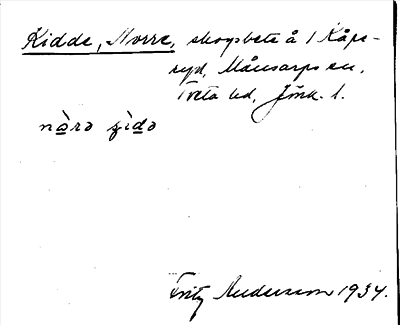 Kidde, Norre, skogsbete å 1 Kåpe-
ryd, Månsarps sn,
Tveta hd, Jönk. l.
nàrə ʝìdə
Fritz Andersson 1934.